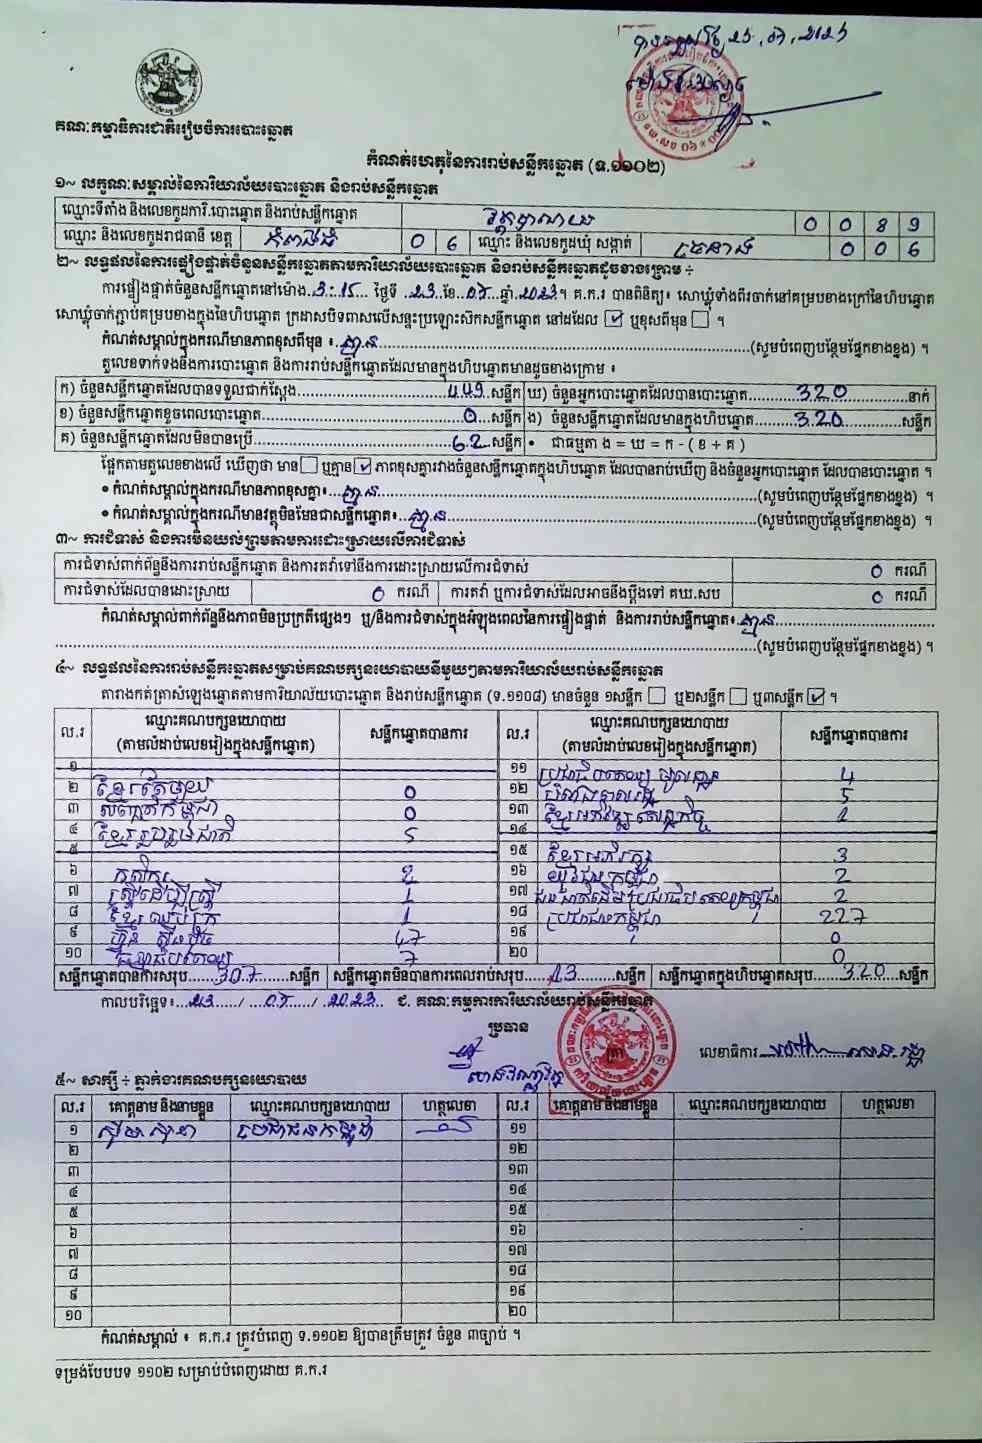 គណៈកម្មាធិការជាតិរៀបចំការបោះឆ្នោត
កំណត់ហេតុនៃការរាប់សន្លឹកឆ្នោត (ទ.១១០២)
១~ លក្ខណៈសម្គាល់នៃការិយាល័យបោះឆ្នោត និងរាប់សន្លឹកឆ្នោត
ឈ្មោះទីតាំង និងលេខកូដការិ.បោះឆ្នោត និងរាប់សន្លឹកឆ្នោត 0 0 8 9
ឈ្មោះ និងលេខកូដរាជធានី ខេត្ត កំពង់ធំ 0 6 ឈ្មោះ និងលេខកូដឃុំ សង្កាត់ 0 0 6
២~ លទ្ធផលនៃការផ្ទៀងផ្ទាត់ចំនួនសន្លឹកឆ្នោតតាមការិយាល័យបោះឆ្នោត និងរាប់សន្លឹកឆ្នោតដូចខាងក្រោម ÷
ការផ្ទៀងផ្ទាត់ចំនួនសន្លឹកឆ្នោតនៅម៉ោង 3:15 ថ្ងៃទី 23 ខែ 07 ឆ្នាំ 2023 ។ គ.ក.រ បានពិនិត្យ៖ សោឃ្លុំទាំងពីរចាក់នៅគម្របខាងក្រៅនៃហិបឆ្នោត
សោឃ្លុំចាក់ភ្ជាប់គម្របខាងក្នុងនៃហិបឆ្នោត ក្រដាសបិទពាសលើសន្ទះប្រឡោះស៊កសន្លឹកឆ្នោត នៅដដែល ☑ ឬខុសពីមុន ☐ ។
កំណត់សម្គាល់ក្នុងករណីមានភាពខុសពីមុន ៖ គ្មាន (សូមបំពេញបន្ថែមផ្នែកខាងខ្នង) ។
តួលេខទាក់ទងនឹងការបោះឆ្នោត និងការរាប់សន្លឹកឆ្នោតដែលមានក្នុងហិបឆ្នោតមានដូចខាងក្រោម ៖
ក) ចំនួនសន្លឹកឆ្នោតដែលបានទទួលជាក់ស្ដែង សន្លឹក ឃ) ចំនួនអ្នកបោះឆ្នោតដែលបានបោះឆ្នោត 320 នាក់
ខ) ចំនួនសន្លឹកឆ្នោតខូចពេលបោះឆ្នោត 0 សន្លឹក ង) ចំនួនសន្លឹកឆ្នោតដែលមានក្នុងហិបឆ្នោត 320 សន្លឹក
គ) ចំនួនសន្លឹកឆ្នោតដែលមិនបានប្រើ 62 សន្លឹក • ជាធម្មតា ង = ឃ = ក - ( ខ + គ )
ផ្អែកតាមតួលេខខាងលើ ឃើញថា មាន ☐ ឬគ្មាន ☑ ភាពខុសគ្នារវាងចំនួនសន្លឹកឆ្នោតក្នុងហិបឆ្នោត ដែលបានរាប់ឃើញ និងចំនួនអ្នកបោះឆ្នោត ដែលបានបោះឆ្នោត ។
• កំណត់សម្គាល់ក្នុងករណីមានភាពខុសគ្នា៖ គ្មាន (សូមបំពេញបន្ថែមផ្នែកខាងខ្នង) ។
• កំណត់សម្គាល់ក្នុងករណីមានវត្ថុមិនមែនជាសន្លឹកឆ្នោត៖ គ្មាន (សូមបំពេញបន្ថែមផ្នែកខាងខ្នង) ។
៣~ ការជំទាស់ និងការមិនយល់ព្រមតាមការដោះស្រាយលើការជំទាស់
ការជំទាស់ពាក់ព័ន្ធនឹងការរាប់សន្លឹកឆ្នោត និងការតវ៉ាទៅនឹងការដោះស្រាយលើការជំទាស់ 0 ករណី
ការជំទាស់ដែលបានដោះស្រាយ 0 ករណី ការតវ៉ា ឬការជំទាស់ដែលអាចនឹងប្ដឹងទៅ គឃ.សប 0 ករណី
កំណត់សម្គាល់ពាក់ព័ន្ធនឹងភាពមិនប្រក្រតីផ្សេងៗ ឬ/និងការជំទាស់ក្នុងអំឡុងពេលនៃការផ្ទៀងផ្ទាត់ និងការរាប់សន្លឹកឆ្នោត៖ គ្មាន
(សូមបំពេញបន្ថែមផ្នែកខាងខ្នង) ។
៤~ លទ្ធផលនៃការរាប់សន្លឹកឆ្នោតសម្រាប់គណបក្សនយោបាយនីមួយៗតាមការិយាល័យរាប់សន្លឹកឆ្នោត
តារាងកត់ត្រាសំឡេងឆ្នោតតាមការិយាល័យបោះឆ្នោត និងរាប់សន្លឹកឆ្នោត (ទ.១១០៨) មានចំនួន ១សន្លឹក ☐ ឬ២សន្លឹក ☐ ឬ៣សន្លឹក ☑ ។
ល.រ ឈ្មោះគណបក្សនយោបាយ (តាមលំដាប់លេខរៀងក្នុងសន្លឹកឆ្នោត) សន្លឹកឆ្នោតបានការ ល.រ ឈ្មោះគណបក្សនយោបាយ (តាមលំដាប់លេខរៀងក្នុងសន្លឹកឆ្នោត) សន្លឹកឆ្នោតបានការ
១ ១១ ប្រជាធិបតេយ្យមូលដ្ឋាន 4
២ ខ្មែរតែមួយ 0 ១២ 5
៣ 0 ១៣ ខ្មែរអភិវឌ្ឍសេដ្ឋកិច្ច
៤ ខ្មែររួបរួមជាតិ 5 ១៤
៥ ១៥ ខ្មែរអភិរក្ស 3
៦ កសិករ 2 ១៦ យុវជនកម្ពុជា 2
៧ ស្រ្តីដើម្បីស្ត្រី 1 ១៧ ជនជាតិដើមប្រជាធិបតេយ្យកម្ពុជា 2
៨ ខ្មែរឈប់ក្រ 1 ១៨ ប្រជាជនកម្ពុជា 227
៩ ហ៊្វុនស៊ិនប៉ិច 47 ១៩ 0
១០ ធម្មាធិបតេយ្យ 7 ២០ 0
សន្លឹកឆ្នោតបានការសរុប 307 សន្លឹក សន្លឹកឆ្នោតមិនបានការពេលរាប់សរុប 13 សន្លឹក សន្លឹកឆ្នោតក្នុងហិបឆ្នោតសរុប 320 សន្លឹក
កាលបរិច្ឆេទ៖ 23 / 07 / 2023 ជ. គណៈកម្មការការិយាល័យរាប់សន្លឹកឆ្នោត
ប្រធាន
លេខាធិការ
៥~ សាក្សី ÷ ភ្នាក់ងារគណបក្សនយោបាយ
ល.រ គោត្តនាម និងនាមខ្លួន ឈ្មោះគណបក្សនយោបាយ ហត្ថលេខា ល.រ គោត្តនាម និងនាមខ្លួន ឈ្មោះគណបក្សនយោបាយ ហត្ថលេខា
១ ប្រជាជនកម្ពុជា ១១
២ ១២
៣ ១៣
៤ ១៤
៥ ១៥
៦ ១៦
៧ ១៧
៨ ១៨
៩ ១៩
១០ ២០
កំណត់សម្គាល់ ៖ គ.ក.រ ត្រូវបំពេញ ទ.១១០២ ឱ្យបានត្រឹមត្រូវ ចំនួន ៣ច្បាប់ ។
ទម្រង់បែបបទ ១១០២ សម្រាប់បំពេញដោយ គ.ក.រ